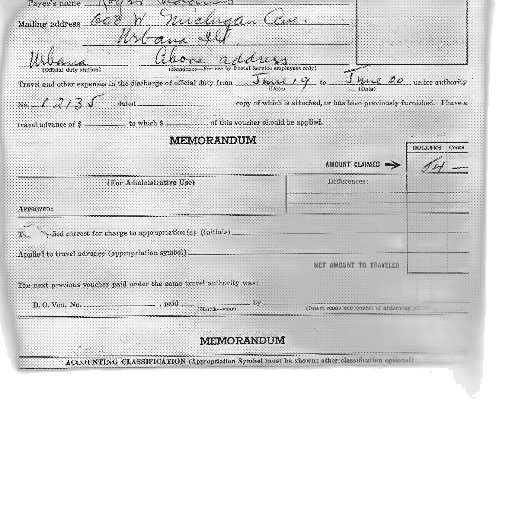 Payee's name
Mailing address 608 W. Michigan Ave.
Urbana Ill
Urbana Above address
(Official duty station) (Residence—For use by Postal Service employees only)
Travel and other expenses in the discharge of official duty from June 19 to June 20 under authority
(Date) (Date)
No. 12135 dated copy of which is attached, or has been previously furnished. I have a
travel advance of $ to which $ of this voucher should be applied.
MEMORANDUM
DOLLARS Cents
AMOUNT CLAIMED 54 —
(For Administrative Use) Differences:
Approved:
certified correct for charge to appropriation(s) (initials)
Applied to travel advance (appropriation symbol)
NET AMOUNT TO TRAVELER
The next previous voucher paid under the same travel authority was:
D. O. Vou. No. , paid by
(Month—year) (Insert name and symbol of disbursing officer)
MEMORANDUM
ACCOUNTING CLASSIFICATION (Appropriation Symbol must be shown; other classification optional)